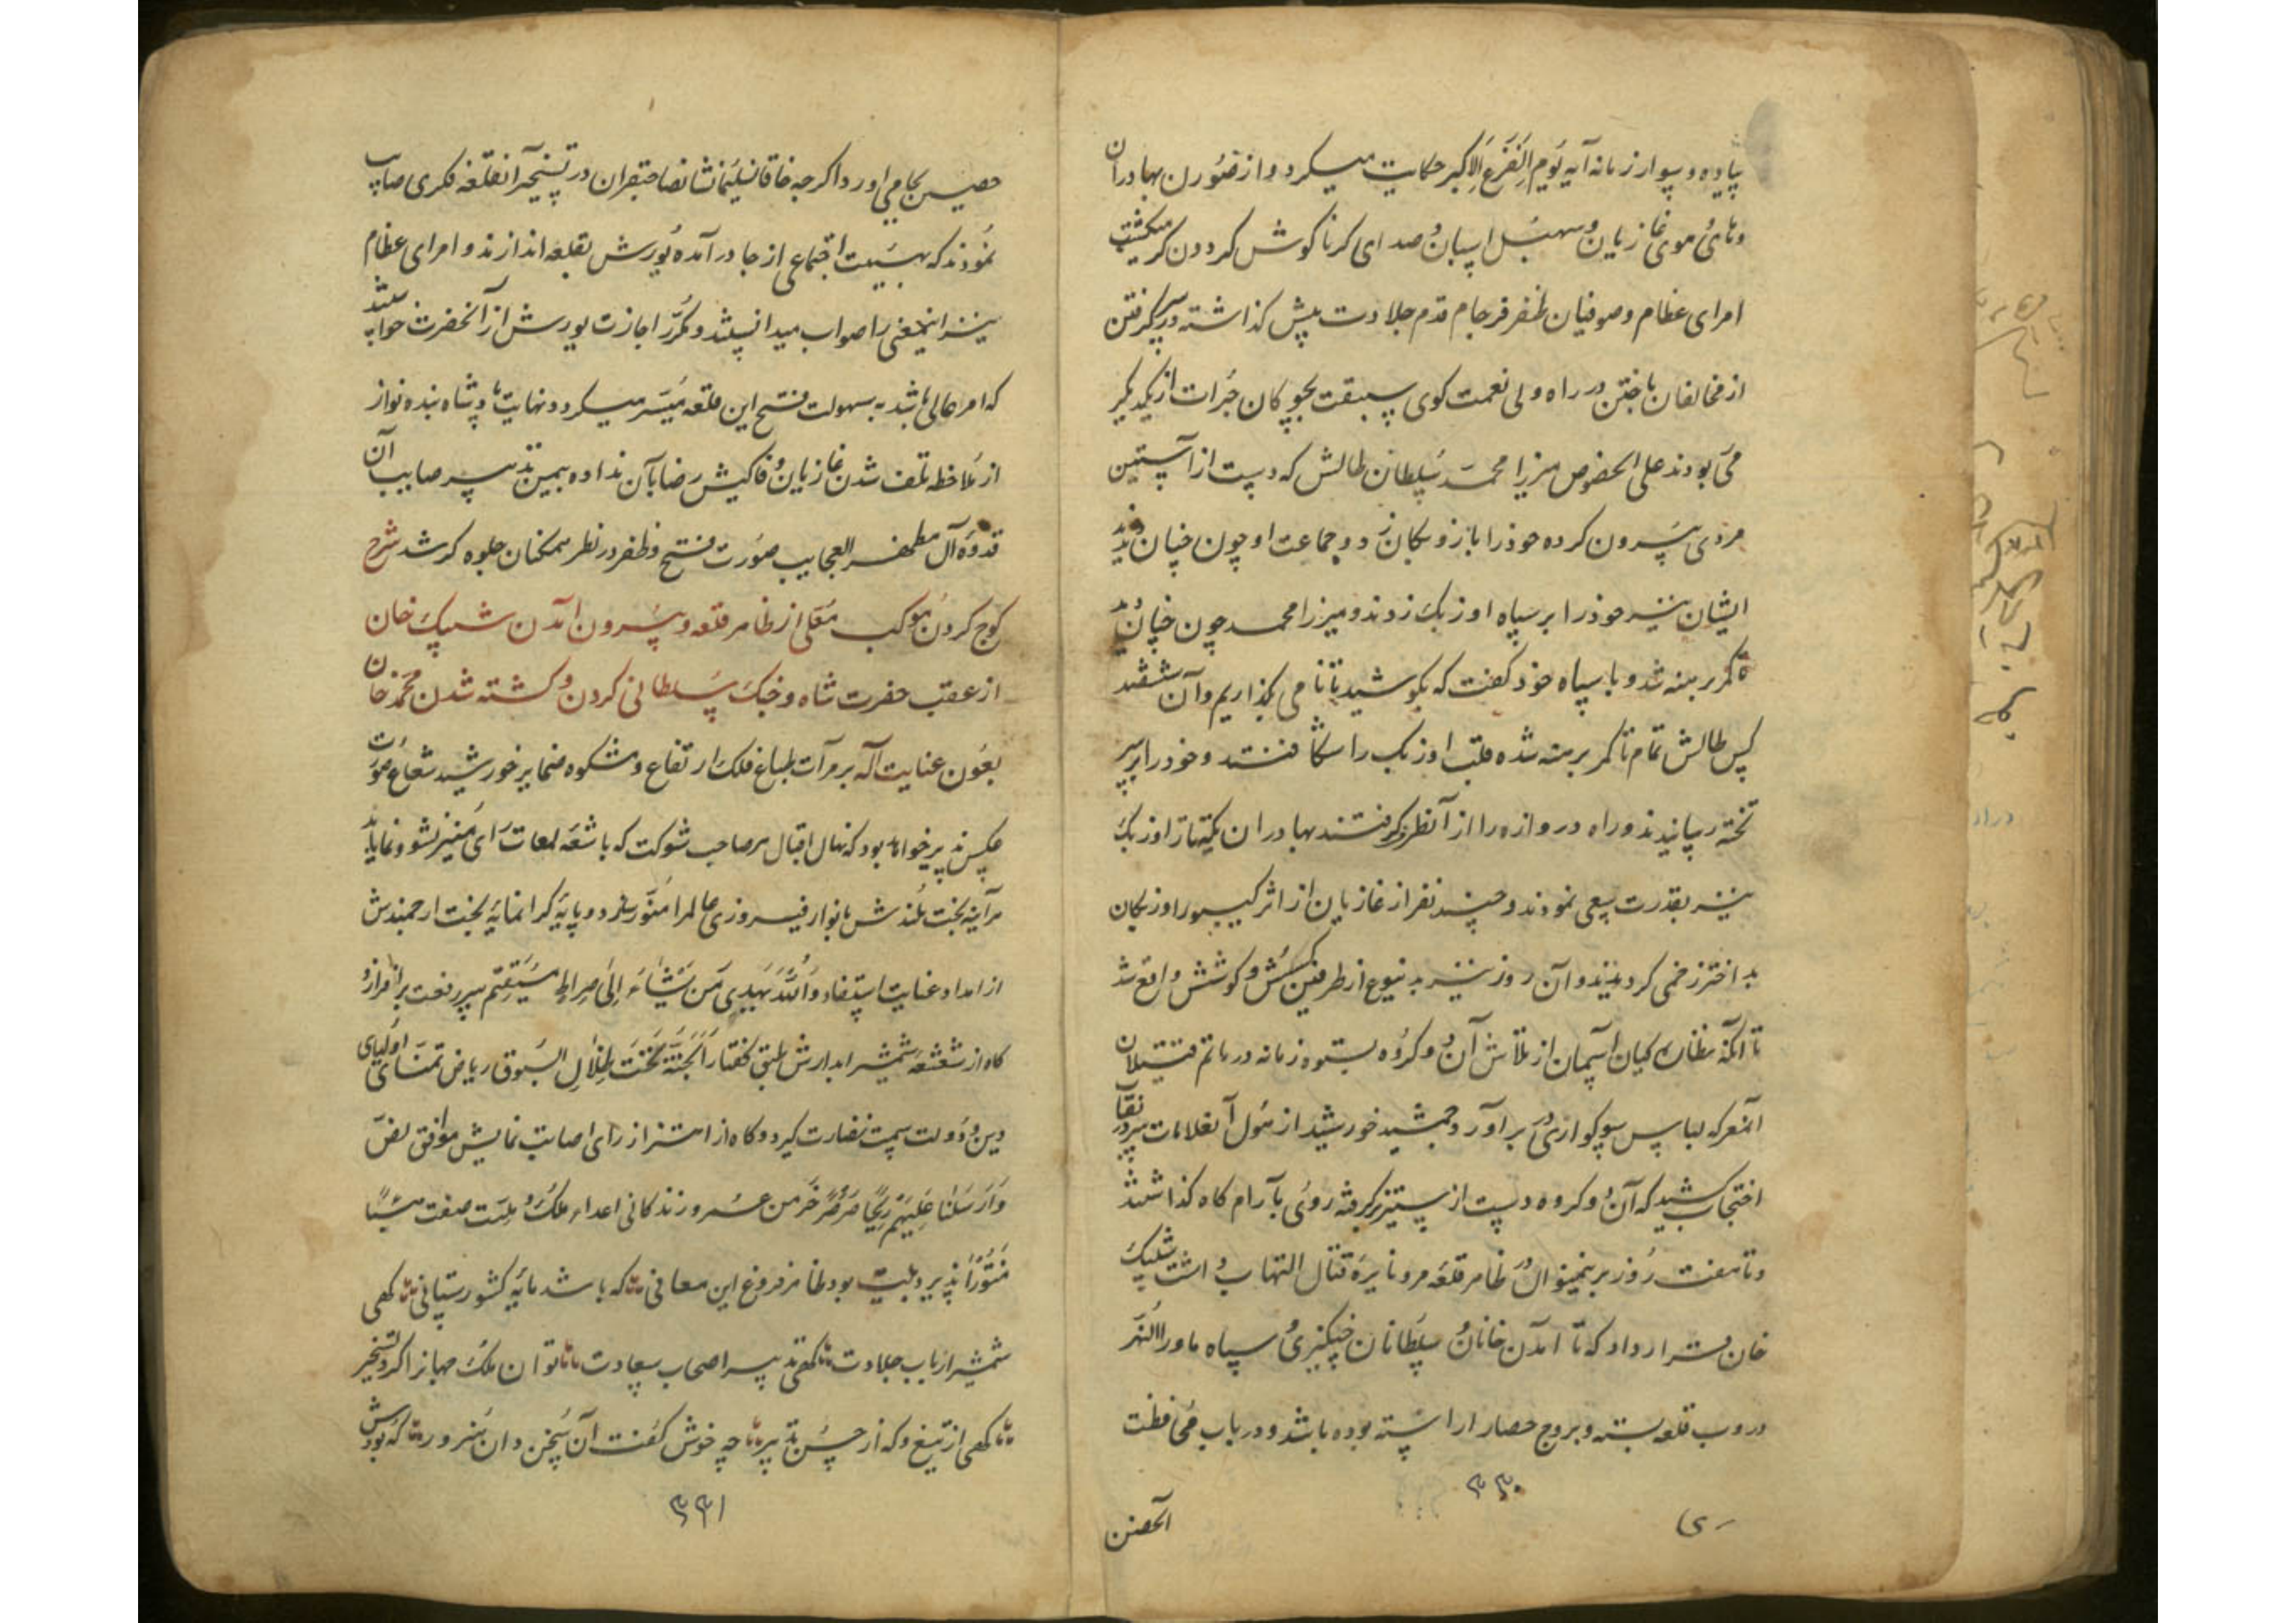 پیاده و سوار زمانه آیه یوم الفزع الاکبر حکایت میکرد و از صورن بهادران
و های هوی غازیان و سهیل اسبان و صدای کرنا کوش کردون کر میکشت
امرای عظام و صوفیان ظفر فرجام قدم جلادت پیش کذاشته در سر کرفتن
از مخالفان باختن در راه ولی نعمت کوی سبقت بچوکان جرات از یکدیکر
می بودند علی الخصوص میرزا محمد سلطان طالش که دست از آستین
مردی بیرون کرده خود را باوزبکان زد و جماعت او چون چنان دیدند
ایشان نیز خود را بر سپاه اوزبک زدند و میرزا محمد چون چنان دید
تا کمر برهنه شد و با سپاه خود کفت که بکوشید تا نامی بکذاریم و آن ششصد
کس طالش تمام تا کمر برهنه شده قلب اوزبک را شکافتند و خود را بر سر
تخته رسانیدند و راه دروازه را از آنطرف کرفتند بهادران یکه تاز اوزبک
نیز بقدرت سعی نمودند و چند نفر از غازیان از اثر کیبورا اوزبکان
بد اختر زخمی کردیدند و آن روز نیز بدینوع از طرفین کشش و کوشش واقع شد
تا آنکه نظارکیان آسمان از تلاش آن دو کروه بستوه زمانه در ماتم قتیلان
آنمعرکه لباس سوکواری در بر آورد و جمشید خورشید از هول آنعلامات سر در نقاب
احتجاب کشید که آن دو کروه دست از ستیز برکرفته روی بآرام کاه کذاشتند
و تا هفت روز برینمنوال در ظاهر قلعه مرو نایره قتال التهاب داشت شیبک
خان قرار داد که تا آمدن خانان و سلطانان چنکیزی و سپاه ماوراالنهر
دروب قلعه بسته و بروج حصار اراسته بوده باشد و در باب محافظت
۳۳۰
آنحصن
حصین بجا می اورد اکرچه خاقان سلیمانشان صاحبقران در تسخیر آنقلعه فکری صایب
نمودند که بهیئت اجتماعی از جا در آمده یورش بقلعه اندازند و امرای عظام
نیز اینمعنی را صواب میدانستند و مکرر اجازت یورش از آنحضرت خواستند
که امر عالی باشد به سهولت فتح این قلعه میسر میکردد نهایت پادشاه بنده نواز
از ملاحظه تلف شدن غازیان وفاکیش رضا بآن نداده بیمن تدبیر صایب آن
قدوه آل مظهر العجایب صورت فتح و ظفر در نظر همکنان جلوه کر شد شرح
کوچ کردن موکب معلی از ظاهر قلعه و بیرون آمدن شیبک خان
از عقب حضرت شاه و جنک سلطانی کردن و کشته شدن محمد خان
بعون عنایت اله بر مرآت طباع فلک ارتفاع و مشکوه ضمایر خورشید شعاع صورت
عکس پذیر خواهد بود که نهال اقبال هر صاحب شوکت که باشعه لمعات رای منیر نشو و نما یابد
هر آینه بخت بلندش بانوار فیروزی عالمرا منور سازد و پایه کرانمایه بخت ارجمندش
از امداد عنایت استفاد والله یهدی من یشاء الی صراط مستقیم سر رفعت بر افرازد
کاه از شعشعه شمشیر ابدارش طبق کفتار الجنة تحت ظلال السیوف ریاض تمنای اولیای
دین و دولت سمت نضارت کیرد و کاه از اهتزاز رای اصابت نمایش موافق نص
وارسلنا علیهم ریحا صرصرا خرمن عمر و زندکانی اعداء ملک و ملت صفت هباء
منثورا پذیرد بیت بود ظاهر فروغ این معانی که باشد مایه کشورستانی کهی
شمشیر ارباب جلادت کهی تدبیر اصحاب سعادت توان ملک جهانرا کرد تسخیر
کهی از تیغ و که از حسن تدبیر چه خوش کفت آن سخن دان هنرور که بودش
۳۳۱